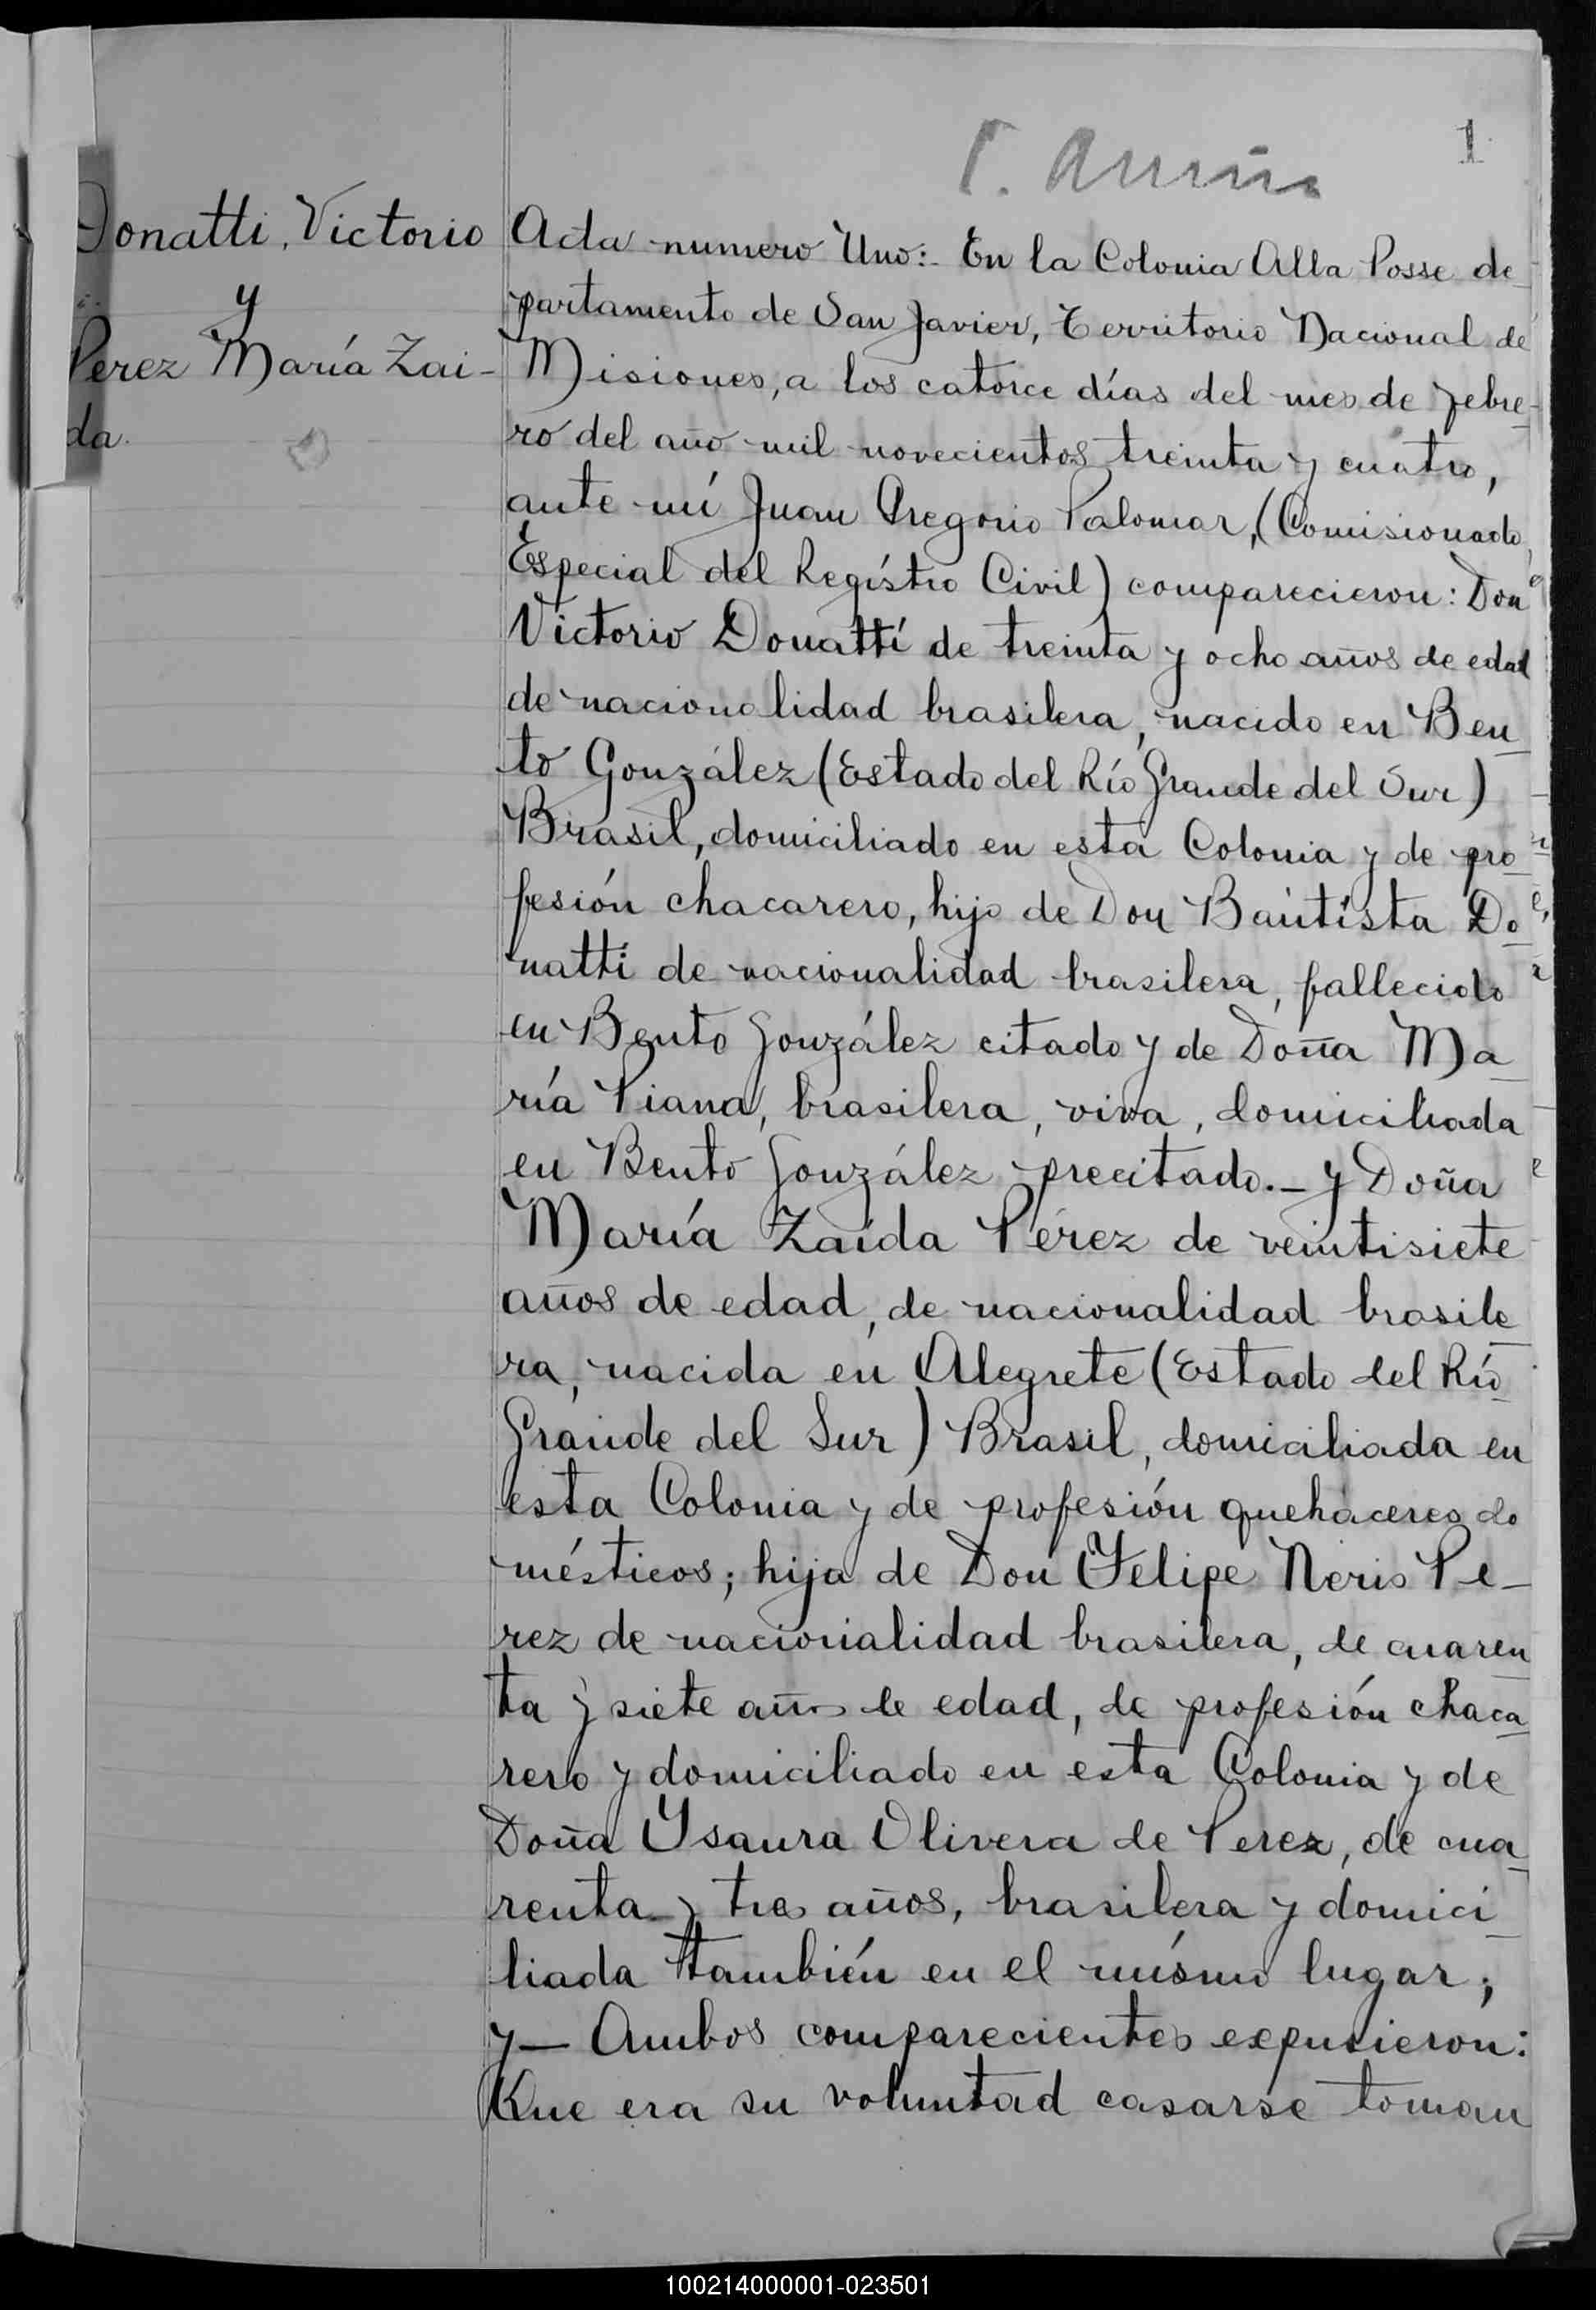 1
Donatti, Victorio
y
Perez María Zai-
da.
Acta numero Uno:- En la Colonia Alba Posse de-
partamento de San Javier, Territorio Nacional de
Misiones, a los catorce días del mes de febre-
ro del año mil novecientos treinta y cuatro,
ante mí Juan Gregorio Palomar, (Comisionado
Especial del Regístro Civil) comparecieron: Don
Victorio Donattí de treinta y ocho años de edad
de nacionalidad brasilera, nacido en Ben-
to González (Estado del Río Grande del Sur)
Brasil, domiciliado en esta Colonia y de pro-
fesión chacarero, hijo de Don Bautísta Do-
natti de nacionalidad brasilera, fallecido
en Bento González citado y de Doña Ma-
ría Piana, brasilera, viva, domiciliada
en Bento González precitado.- y Doña
María Zaída Pérez de veintisiete
años de edad, de nacionalidad brasile-
ra, nacida en Alegrete (Estado del Río
Grande del Sur) Brasil, domiciliada en
esta Colonia y de profesión queháceres do
mésticos; hija de Don Felipe Neris Pe-
rez de nacionalidad brasilera, de cuaren
ta y siete años de edad, de profesión chaca-
rero y domiciliado en esta Colonia y de
Doña Ysaura Olivera de Perez, de cua-
renta y tres años, brasilera y domici-
liada también en el mísmo lugar;
y— Ambos comparecientes expusieron:
Que era su voluntad casarse toman
100214000001-023501